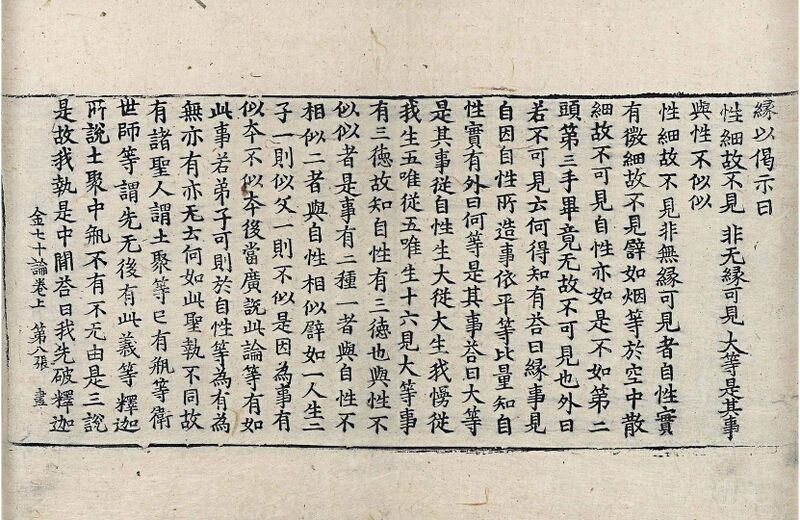 縁以偈示曰
性細故不見　非无縁可見　大等是其事
與性不似似
性細故不見非無縁可見者自性實
有微細故不見譬如烟等於空中散
細故不可見自性亦如是不如第二
頭第三手畢竟无故不可見也外曰
若不可見云何得知有荅曰縁事見
自因自性所造事依平等比量知自
性實有外曰何等是其事荅曰大等
是其事従自性生大従大生我慢従
我生五唯従五唯生十六見大等事
有三徳故知自性有三徳也與性不
似似者是事有二種一者與自性不
相似二者與自性相似譬如一人生二
子一則似父一則不似是因為事有
似夲不似夲後當廣說此論等有如
此事若弟子可則於自性等為有為
無亦有亦无云何如此聖執不同故
有諸聖人謂土聚等已有瓶等衛
世師等謂先无後有此義等釋迦
所說土聚中瓶不有不无由是三說
是故我執是中間荅曰我先破釋迦
金七十論卷上　第八張　畫